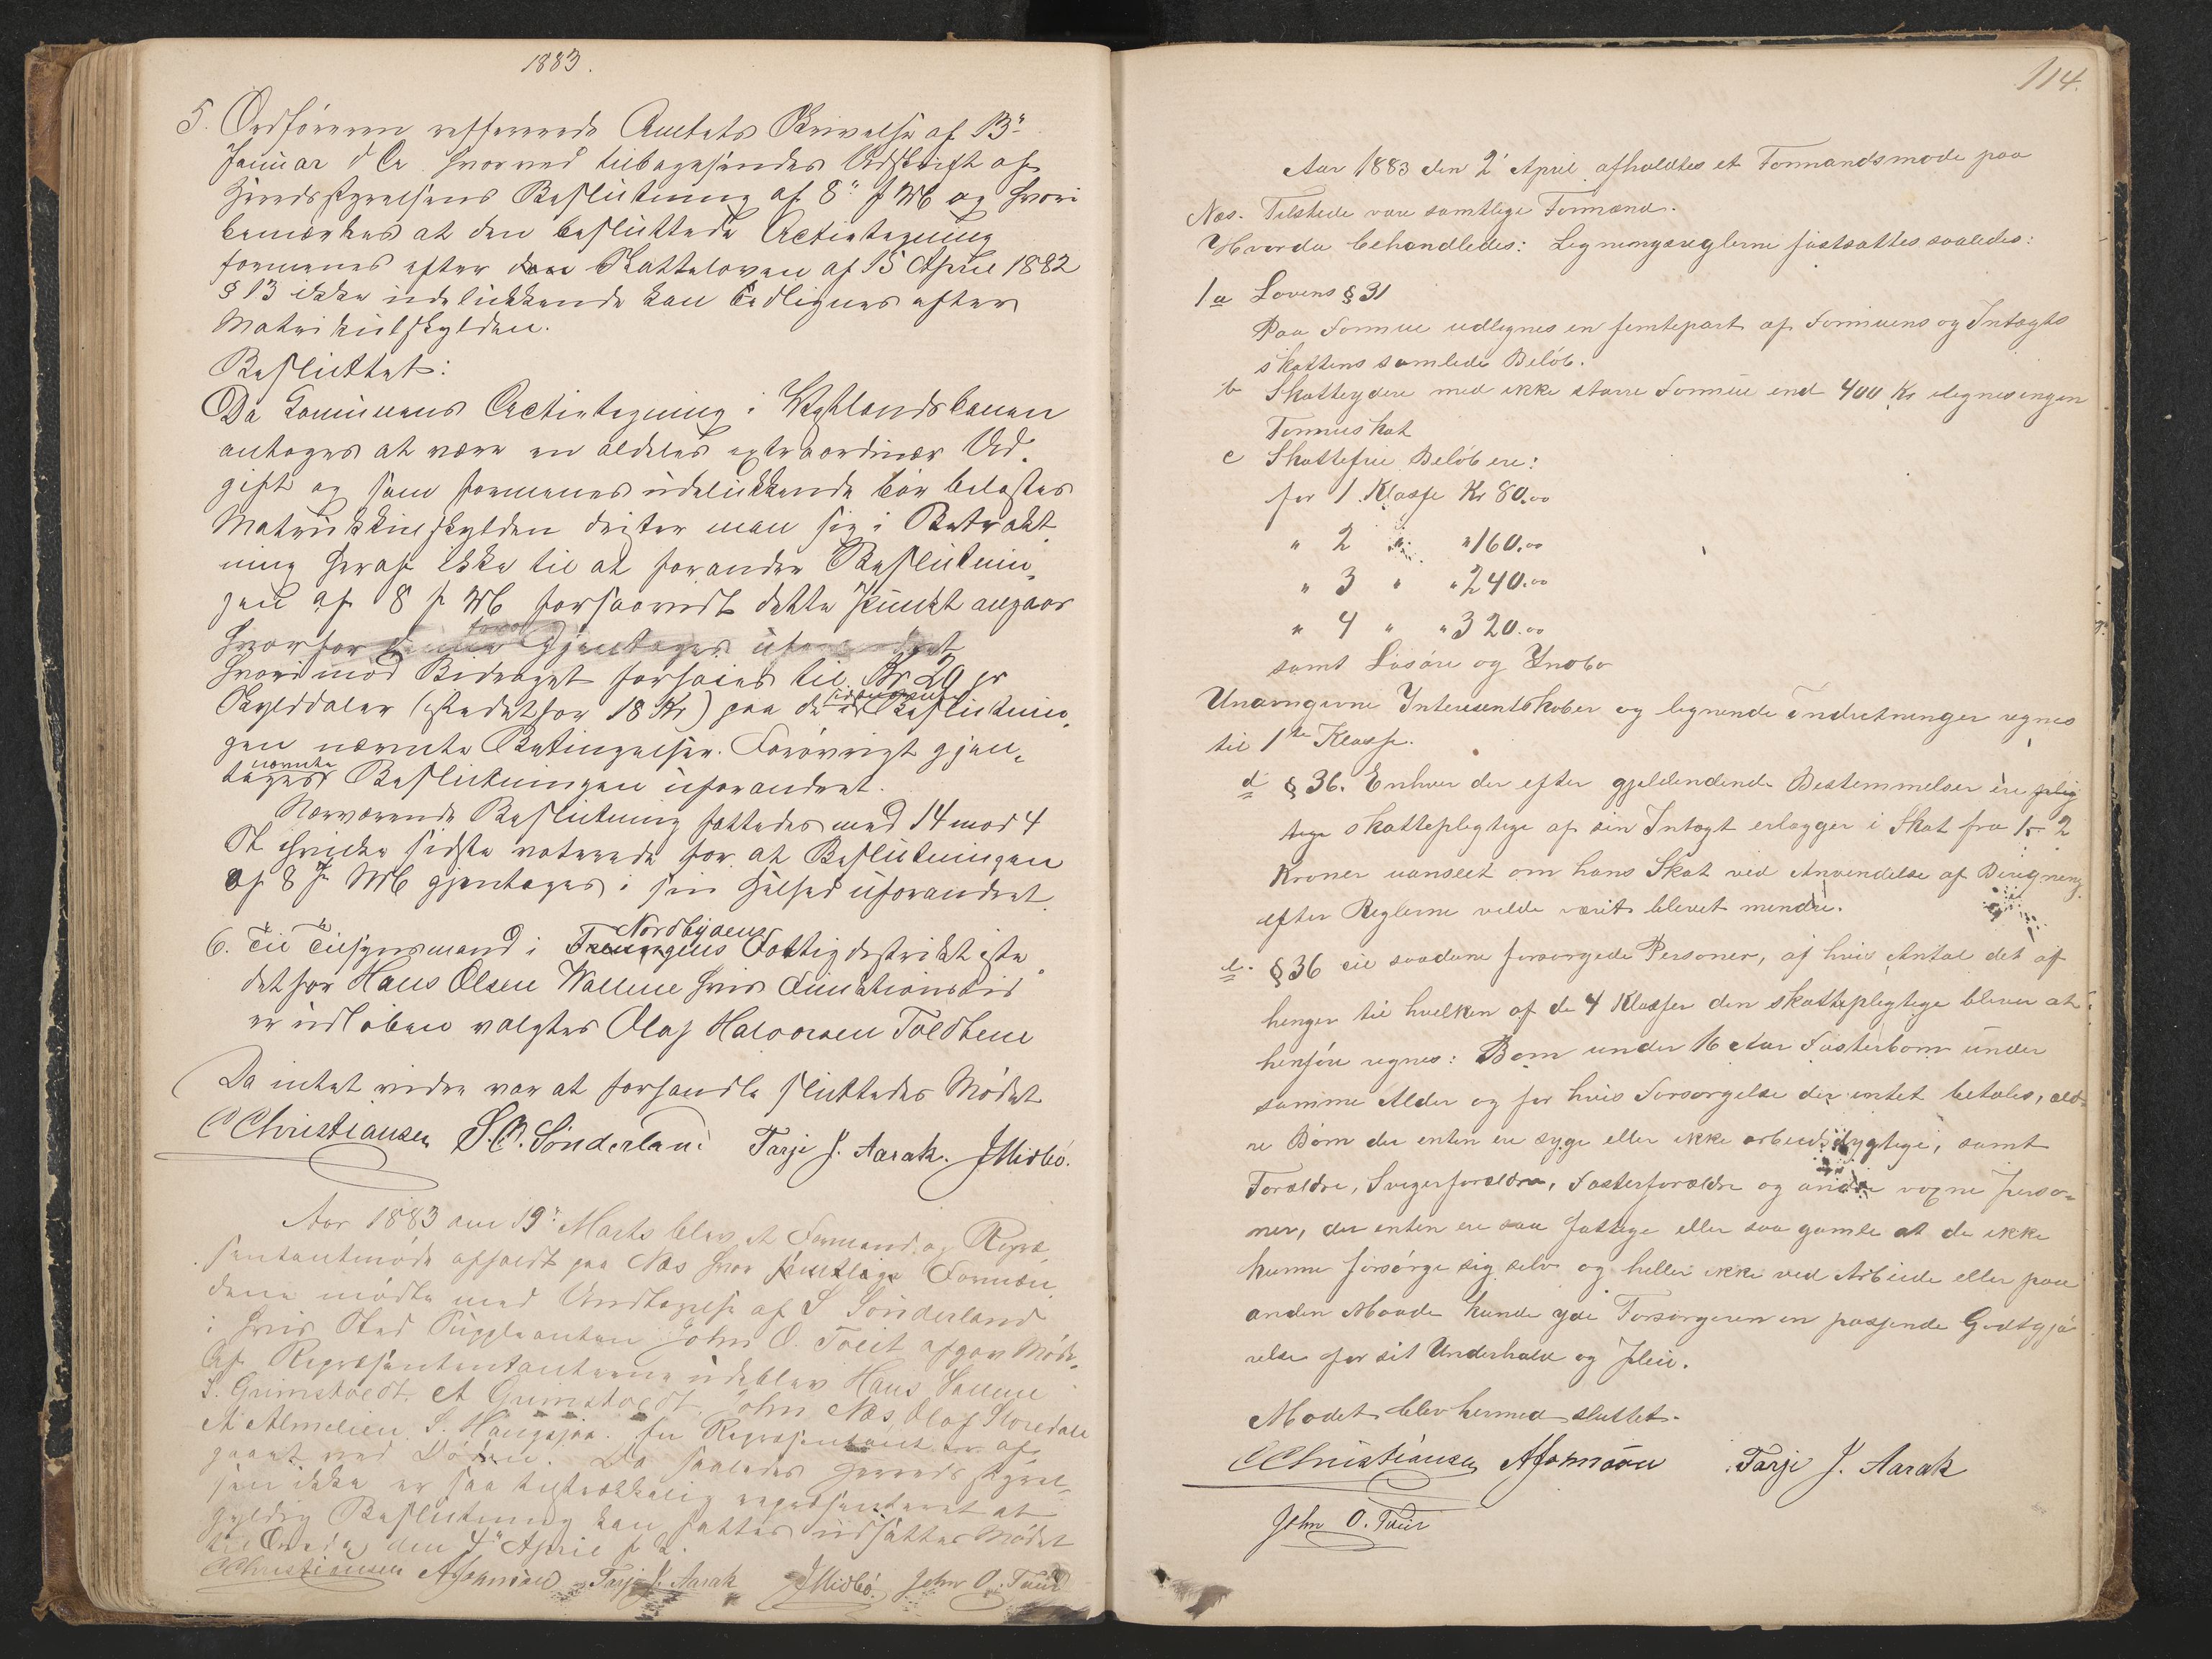 1883.
5. Ordføreren refererede Amtets Skrivelse af 13"
Januar d A hvorved tilbagesendes Udskrift af
Herredsstyrelsens Beslutning af 8" f M og hvori
bemærkes at den besluttede Actietegning
formenes efter den Skatteloven af 15 April 1882
§ 13 ikke udelukkende kan udlignes efter
Matrikulskylden.
Besluttet:
Da Comunens Actietegning i Vestlandsbanen
antages at være en aldeles extraordinær Ud-
gift og som formenes udelukkende bør belastes
Matrikkulskylden drister man sig i Betrakt-
ning heraf ikke til at forandre Beslutnin-
gen af 8 f M forsaavidt dette Punkt angaar
hvorfor Gjentages
hvorimod Bidraget forhøies til Kr 20 pr
Skylddaler (istedetfor 18 Kr) paa de i Beslutnin-
gen nævnte Betingelser. Forøvrigt gjen-
tages nævnte Beslutningen uforandret.
Nærværende Beslutning fattedes med 14 mod 4
St hvilke sidste voterede for at Beslutningen
af 8 f M gjentages i sin Helhed uforandret
6. Til Tilsynsmand i Nordbyens Fattigdistrikt iste-
detfor Hans Olsen Vallene hvis Funktionstid
er udløben valgtes Olaf Halvorsen Toldbene
Da intet videre var at forhandle sluttedes Mødet
C Christiansen S. O. Sönderland Tarje J. Aarak. J Midbö.
Aar 1883 den 19" Marts blev et Formands og Repræ-
sentantmøde afholdt paa Næs hvor samtlige Formæn-
dene mødte med Undtagelse af S Sönderland
i hvis Sted Suppleanten John O. Tveit afgav Møde.
Af Repræsentantanterne udeblev Hans Vallene
S. Grimstvedt, A Grimstvedt, John Næs, Olaf Storedale
A Almelien, S. Haugsjaa. En Repræsentant er af-
gaaet ved Døden. Da saaledes Herredsstyrel-
sen ikke er saa tilstrækkelig repræsenteret at
gyldig Beslutning kan fattes udsattes Mødet
til Onsdag den 4" April
C Christiansen Tarje J. Aarak J Midbö. John O. Tveit
114.
Aar 1883 den 2' April afholdtes et Formandsmøde paa
Næs. Tilstede vare samtlige Formænd.
Hvorda behandledes: Ligningsreglerne fastsattes saaledes:
1 a Lovens § 31
Paa Formue udlignes en femtepart af Formuens og Intægts
skattens samlede Beløb.
b Skatteydere med ikke større Formue end 400 Kr ilignes ingen
Formuskat
c Skattefrie Beløb ere:
for 1. Klasse Kr 80.00
" 2 " " 160.00
" 3 " " 240.00
" 4 " " 320.00
samt Løsøre og Inobo
Unævngivne Interesentskaber og lignende Indretninger regnes
til 1ste Klasse.
d § 36. Enhver der efter gjeldendende Bestemmelser ere plig
tige skattepligtige af sin Intægt erlægger i Skat fra 1 - 2
Kroner uanseet om hans Skat ved Anvendelse af Berigning
efter Reglerne vilde værit blevet mindre.
e. § 36 til saadane forsørgede Personer, af hvis Antal det af
henger til hvilken af de 4 Klasser den skattepligtige bliver at
henføre regnes: Børn under 16 Aar Fosterbørn under
samme Alder og for hvis Forsørgelse der intet betales, æld-
re Børn der enten ere syge eller ikke arbeidsdygtige, samt
Forældre, Svigerforældre, Fosterforældre og andre voxne Perso-
ner, der enten ere saa fattige eller saa gamle at de ikke
kunne forsørge sig selv og heller ikke ved Arbeide eller paa
anden Maade kunde yde Forsørgeren en passende Godtgjø
relse for sit Underhold og Pleie.
Mødet blev hermed sluttet.
C Christiansen Tarje J. Aarak
John O. Tveit